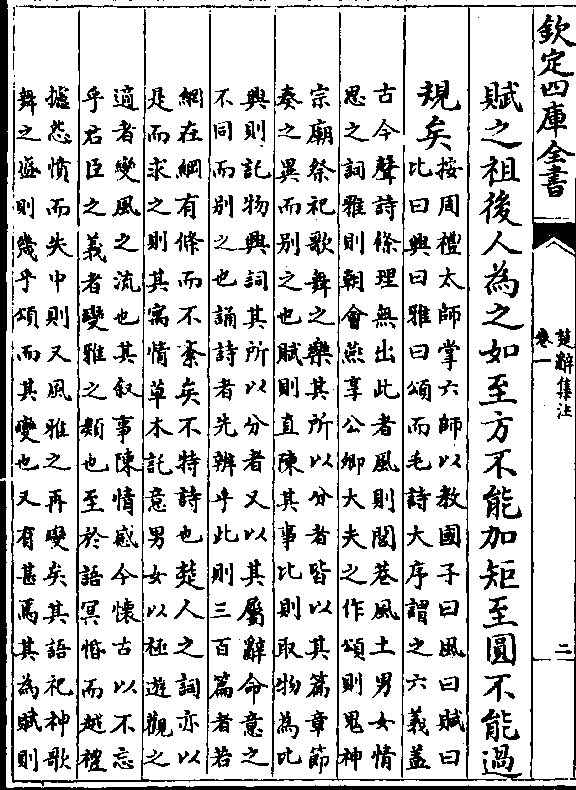 欽定四庫全書
楚辭集注
卷一
二
賦之祖後人為之如至方不能加矩至圓不能過
規矣
按周禮太師掌六師以教國子曰風曰賦曰
比曰興曰雅曰頌而毛詩大序謂之六義蓋
古今聲詩條理無出此者風則閭巷風土男女情
思之詞雅則朝會燕享公卿大夫之作頌則鬼神
宗廟祭祀歌舞之樂其所以分者皆以其篇章節
奏之異而别之也賦則直陳其事比則取物為比
興則託物興詞其所以分者又以其屬辭命意之
不同而别之也誦詩者先辨乎此則三百篇者若
網在綱有條而不紊矣不特詩也楚人之詞亦以
是而求之則其寓情草木託意男女以極遊觀之
適者變風之流也其叙事陳情感今懷古以不忘
乎君臣之義者變雅之類也至於語冥婚而越禮
攄怨憤而失中則又風雅之再變矣其語祀神歌
舞之盛則幾乎頌而其變也又有甚焉其為賦則